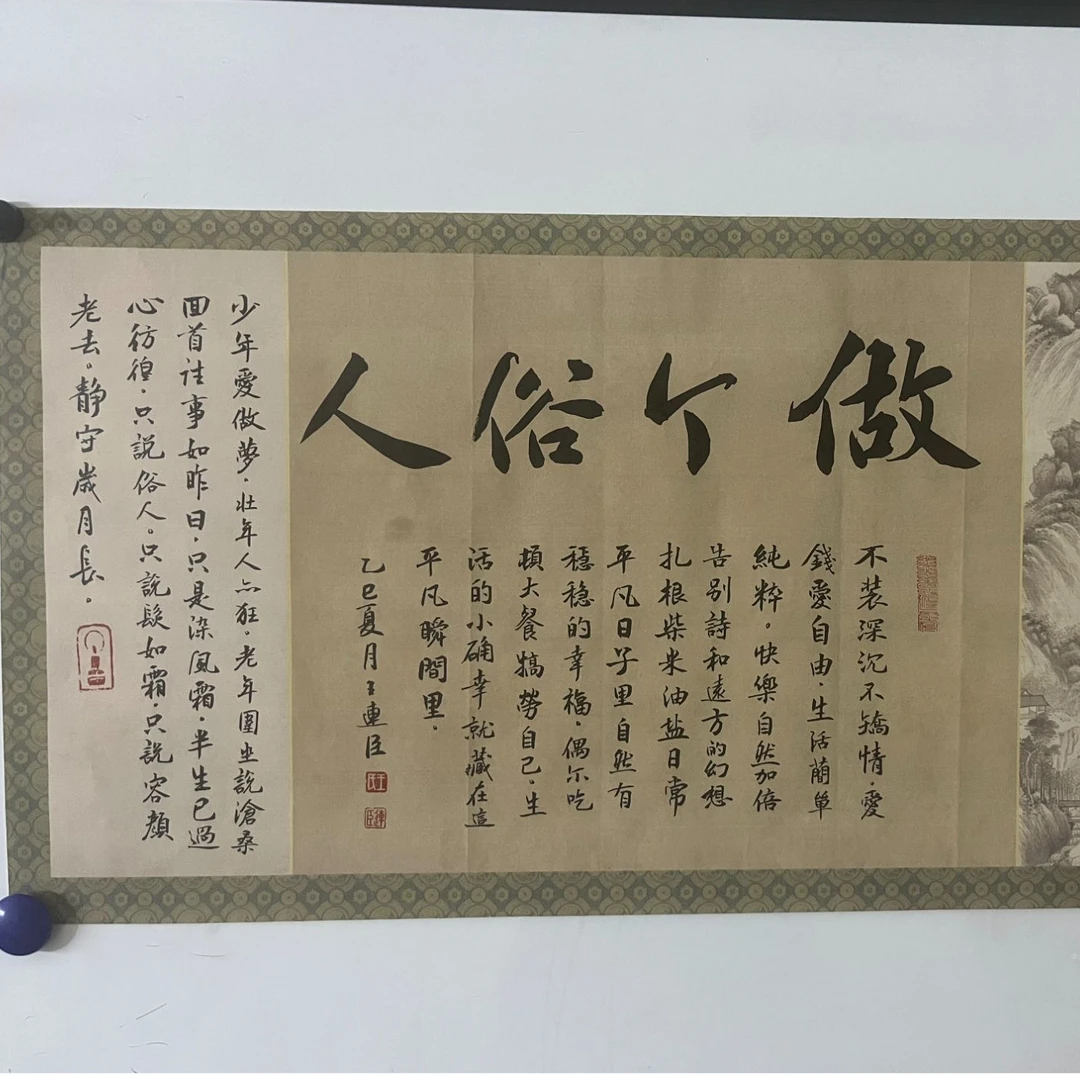 做个俗人
不装深沉不矯情·愛
錢愛自由·生活蕳单
純粹。快樂自然加倍
告别詩和遠方的幻想
扎根柴米油盐日常
平凡日子里自然有
穏穏的幸福·偶尔吃
頓大餐犒勞自己·生
活的小确幸就藏在這
平凡瞬間里·
乙巳夏月王連臣
少年愛做夢·壮年人亦狂·老年圍坐說滄桑
回首往事如昨日·只是染風霜·半生已過
心彷徨·只說俗人。只說髮如霜·只說容顏
老去。靜守歲月長。